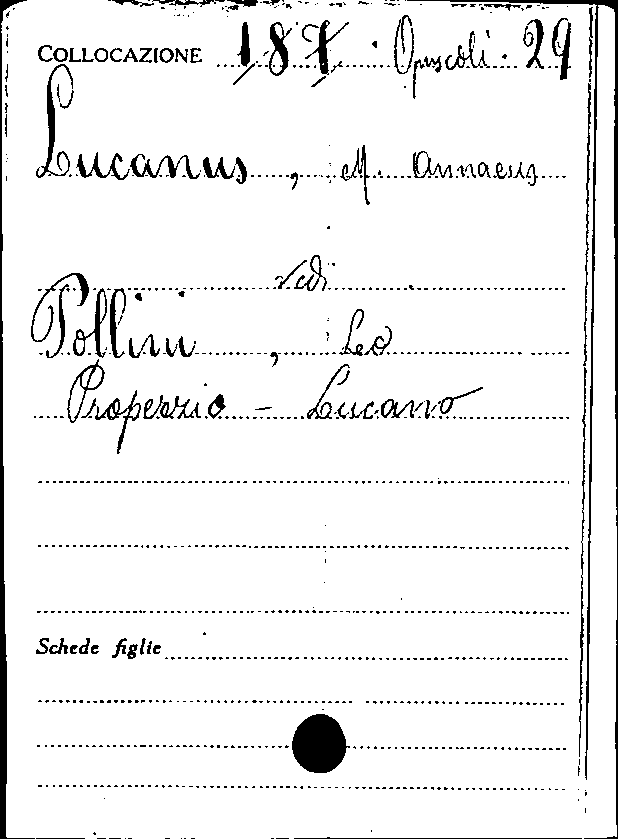 COLLOCAZIONE 187. Opuscoli. 29
Lucanus, M. Annaeus
vedi
Pollini, Leo
Properzio - Lucano
Schede figlie